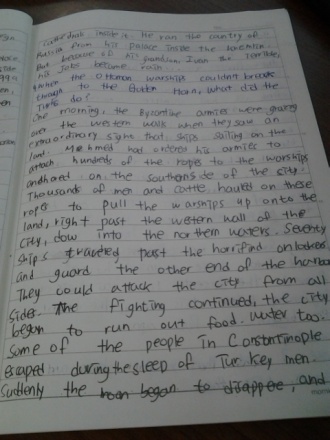 inside it. He ran the country of
Russia from his palace inside the kremlin
But because of his grandson, Ivan the Terrible,
his jobs became ruin
When the Ottoman warships couldn't break
through to the Golden Horn, what did the
Turks do?
One morning, the Byzantine armies were gazing
over the western walls when they saw an
extraordinary sight that ships sailing on the
land. Mehmed had orders his armies to
attach hundreds of the ropes to the warships
anchored on the southern side of the city.
Thousands of men and cattle hauled on these
ropes to pull the warships up onto the
land, right past the western hall of the
city, dow into the northern waters. Seventy
ships traveled past the horrifind onlookers
and guard the other end of the harbor
They could attack the city from all
sides. The fighting continued, the city
began to run out food. water too.
Some of the people in Constantinople
escaped during the sleep of Turkey men.
Suddenly the moon began to disappee, and